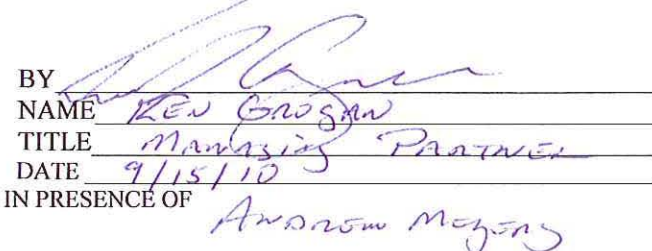 BY
NAME KEN GROGAN
TITLE MANAGING PARTNER
DATE 9/15/10
IN PRESENCE OF
ANDREW MEYERS